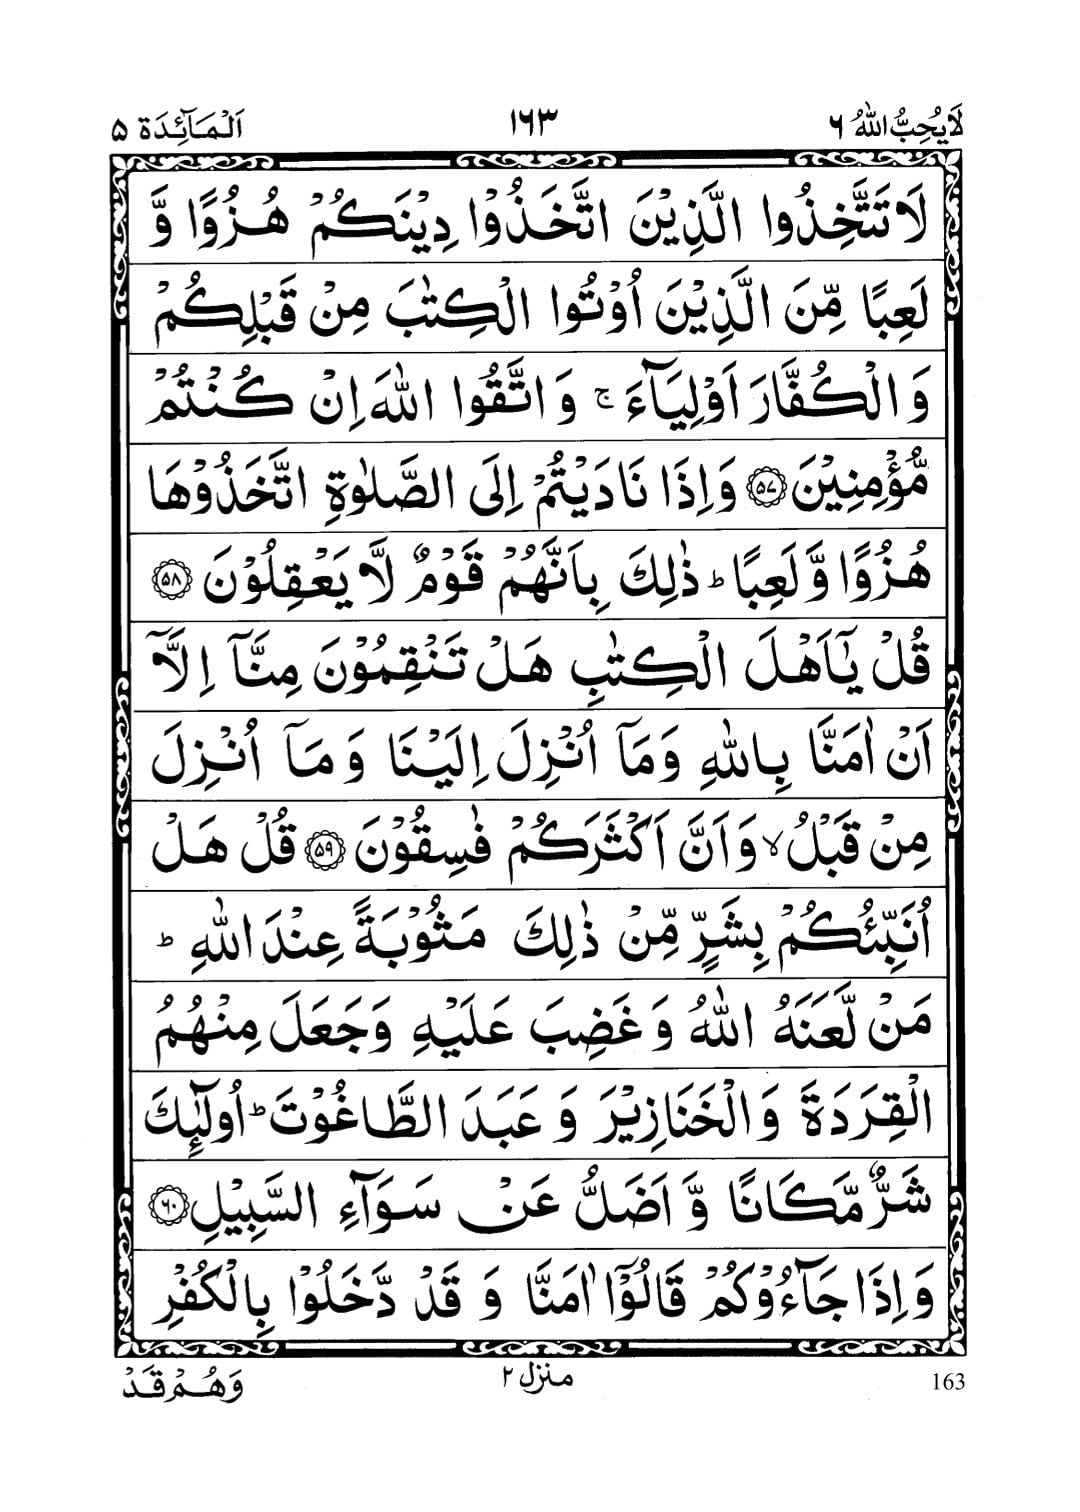 لَا يُحِبُّ اللهُ ٦ ١٦٣ اَلْمَآئِدَة ۵
لَا تَتَّخِذُوا الَّذِيْنَ اتَّخَذُوْا دِيْنَكُمْ هُزُوًا وَّ
لَعِبًا مِّنَ الَّذِيْنَ اُوْتُوا الْكِتٰبَ مِنْ قَبْلِكُمْ
وَالْكُفَّارَ اَوْلِيَآءَ ۚ وَاتَّقُوا اللهَ اِنْ كُنْتُمْ
مُّؤْمِنِيْنَ ﴿۵۷﴾ وَاِذَا نَادَيْتُمْ اِلَى الصَّلٰوةِ اتَّخَذُوْهَا
هُزُوًا وَّلَعِبًا ؕ ذٰلِكَ بِاَنَّهُمْ قَوْمٌ لَّا يَعْقِلُوْنَ ﴿۵۸﴾
قُلْ يٰۤاَهْلَ الْكِتٰبِ هَلْ تَنْقِمُوْنَ مِنَّاۤ اِلَّاۤ
اَنْ اٰمَنَّا بِاللهِ وَمَاۤ اُنْزِلَ اِلَيْنَا وَمَاۤ اُنْزِلَ
مِنْ قَبْلُ ۙ وَاَنَّ اَكْثَرَكُمْ فٰسِقُوْنَ ﴿۵۹﴾ قُلْ هَلْ
اُنَبِّئُكُمْ بِشَرٍّ مِّنْ ذٰلِكَ مَثُوْبَةً عِنْدَ اللهِ ؕ
مَنْ لَّعَنَهُ اللهُ وَغَضِبَ عَلَيْهِ وَجَعَلَ مِنْهُمُ
الْقِرَدَةَ وَالْخَنَازِيْرَ وَعَبَدَ الطَّاغُوْتَ ؕ اُولٰٓئِكَ
شَرٌّ مَّكَانًا وَّاَضَلُّ عَنْ سَوَآءِ السَّبِيْلِ ﴿۶۰﴾
وَاِذَا جَآءُوْكُمْ قَالُوْۤا اٰمَنَّا وَقَدْ دَّخَلُوْا بِالْكُفْرِ
163 منزل ۲ وَهُمْ قَدْ